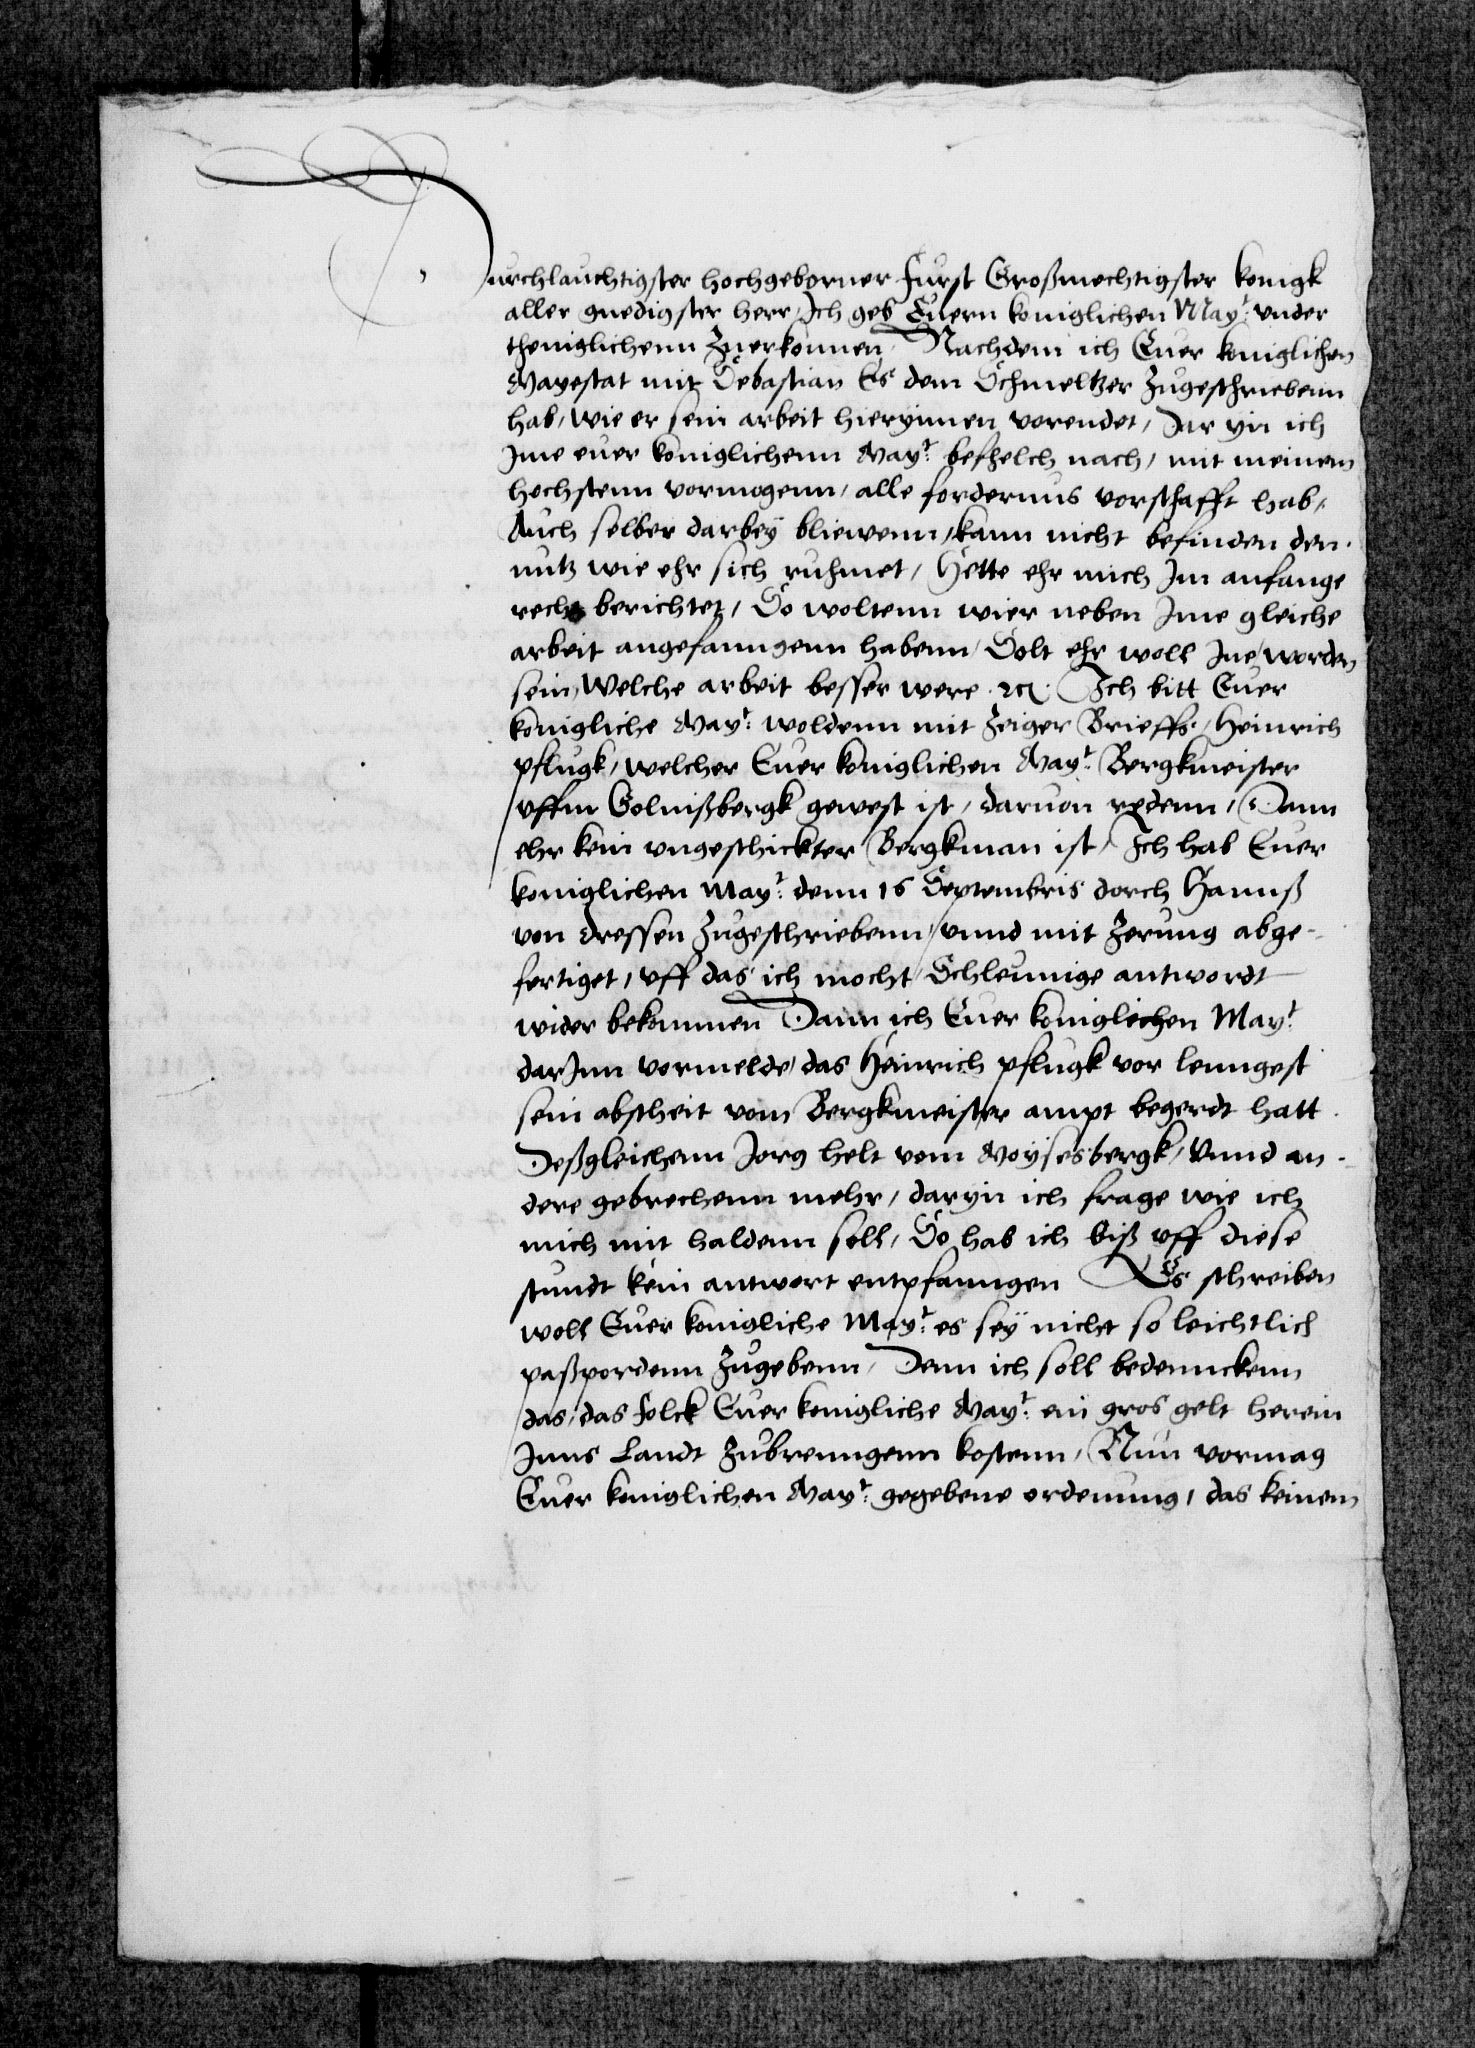 Durchlauchtigster hochgeborner Furst Großmechtigster konigk
aller gnedigster herr, Ich geb Euern koniglichen Mayt: vnder
theniglichenn Zuerkonnen, Nachdem ich Euer koniglichen
Mayestat mit Sebastian Es dem Schmeltzer Zugeschriebenn
hab, wie er sein arbeit hierynnen vorendet, Dar yn ich
Ime euer koniglichenn Mayt: befhelch nach, mit meinem
hochstenn vormogenn, alle fordernus vorschafft hab,
Auch selber darbey bliewenn, kann nicht befinden den
nutz wie ehr sich ruhmet, Hette ehr mich Im anfange
recht berichtet, So woltenn wier neben Ime gleiche
arbeit angefanngenn habenn, Solt ehr woll Ine worden
sein, Welche arbeit besser were. rc. Ich bitt Euer
konigliche Mayt: woldenn mit Zeiger Brieffs, Heinrich
pflugk, welcher Euer koniglichen Mayt: Bergkmeister
vffm Golnißbergk gewest ist, daruon redenn, Dann
ehr kein vngeschickter Bergkman ist, Ich hab Euer
koniglichen Mayt: denn 16 Septembris dorch Hannß
von dressen Zugeschriebenn, vnnd mit Zerung abge-
fertiget, vff das ich mocht Schleunige antwordt
wider bekommen Dann ich Euer koniglichen Mayt:
darInn vormelde, das Heinrich pflugk vor lenngest
sein abscheit vom Bergkmeister ampt begerdt hatt.
Deßgleichenn Jorg helt vom Moysesbergk, Vnnd an-
dere gebrechenn mehr, daryn ich frage wie ich
mich mit haldenn soll, So hab ich biß vff diese
stundt kein antwort entpfanngen Es schreiben
woll Euer konigliche Mayt: es sey nicht so leichtlich
paßpordenn Zugebenn, Denn ich soll bedennckenn
das, das folck Euer konigliche Mayt: ein gros gelt herein
Inns Landt Zubrenngenn kostenn, Nun vormag
Euer koniglichen Mayt: gegebene ordenung, das keinem